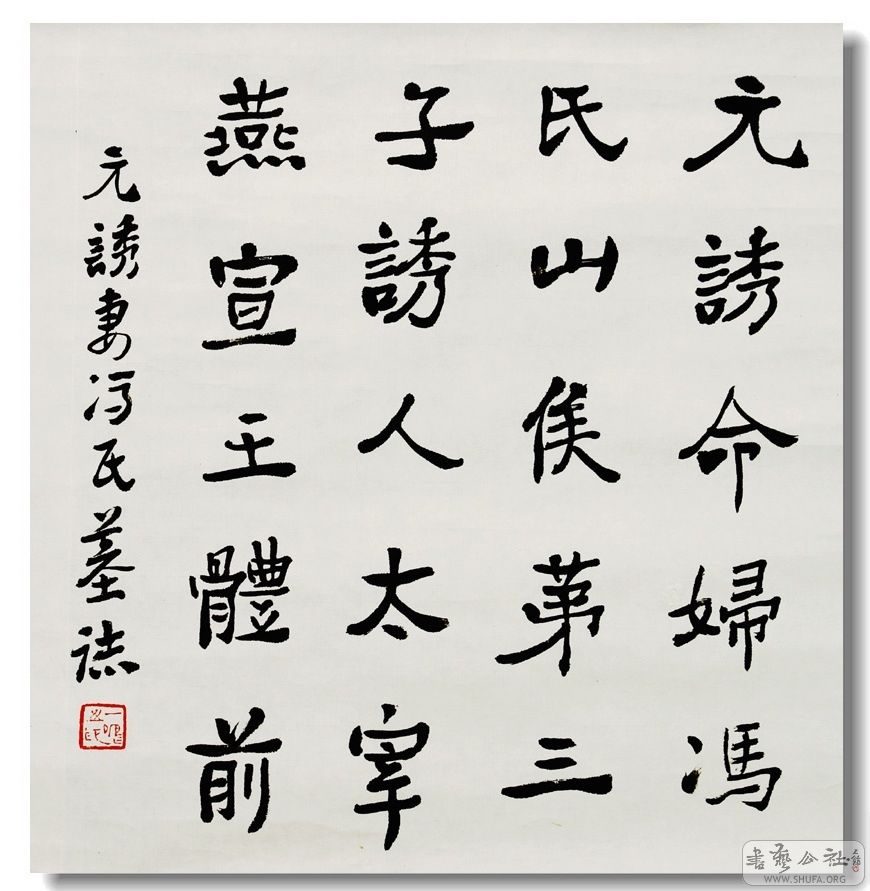 元誘命婦馮
氏山侯苐三
子誘人太宰
燕宣王體前
元誘妻冯氏墓誌
書藝公社
WWW.SHUFA.ORG